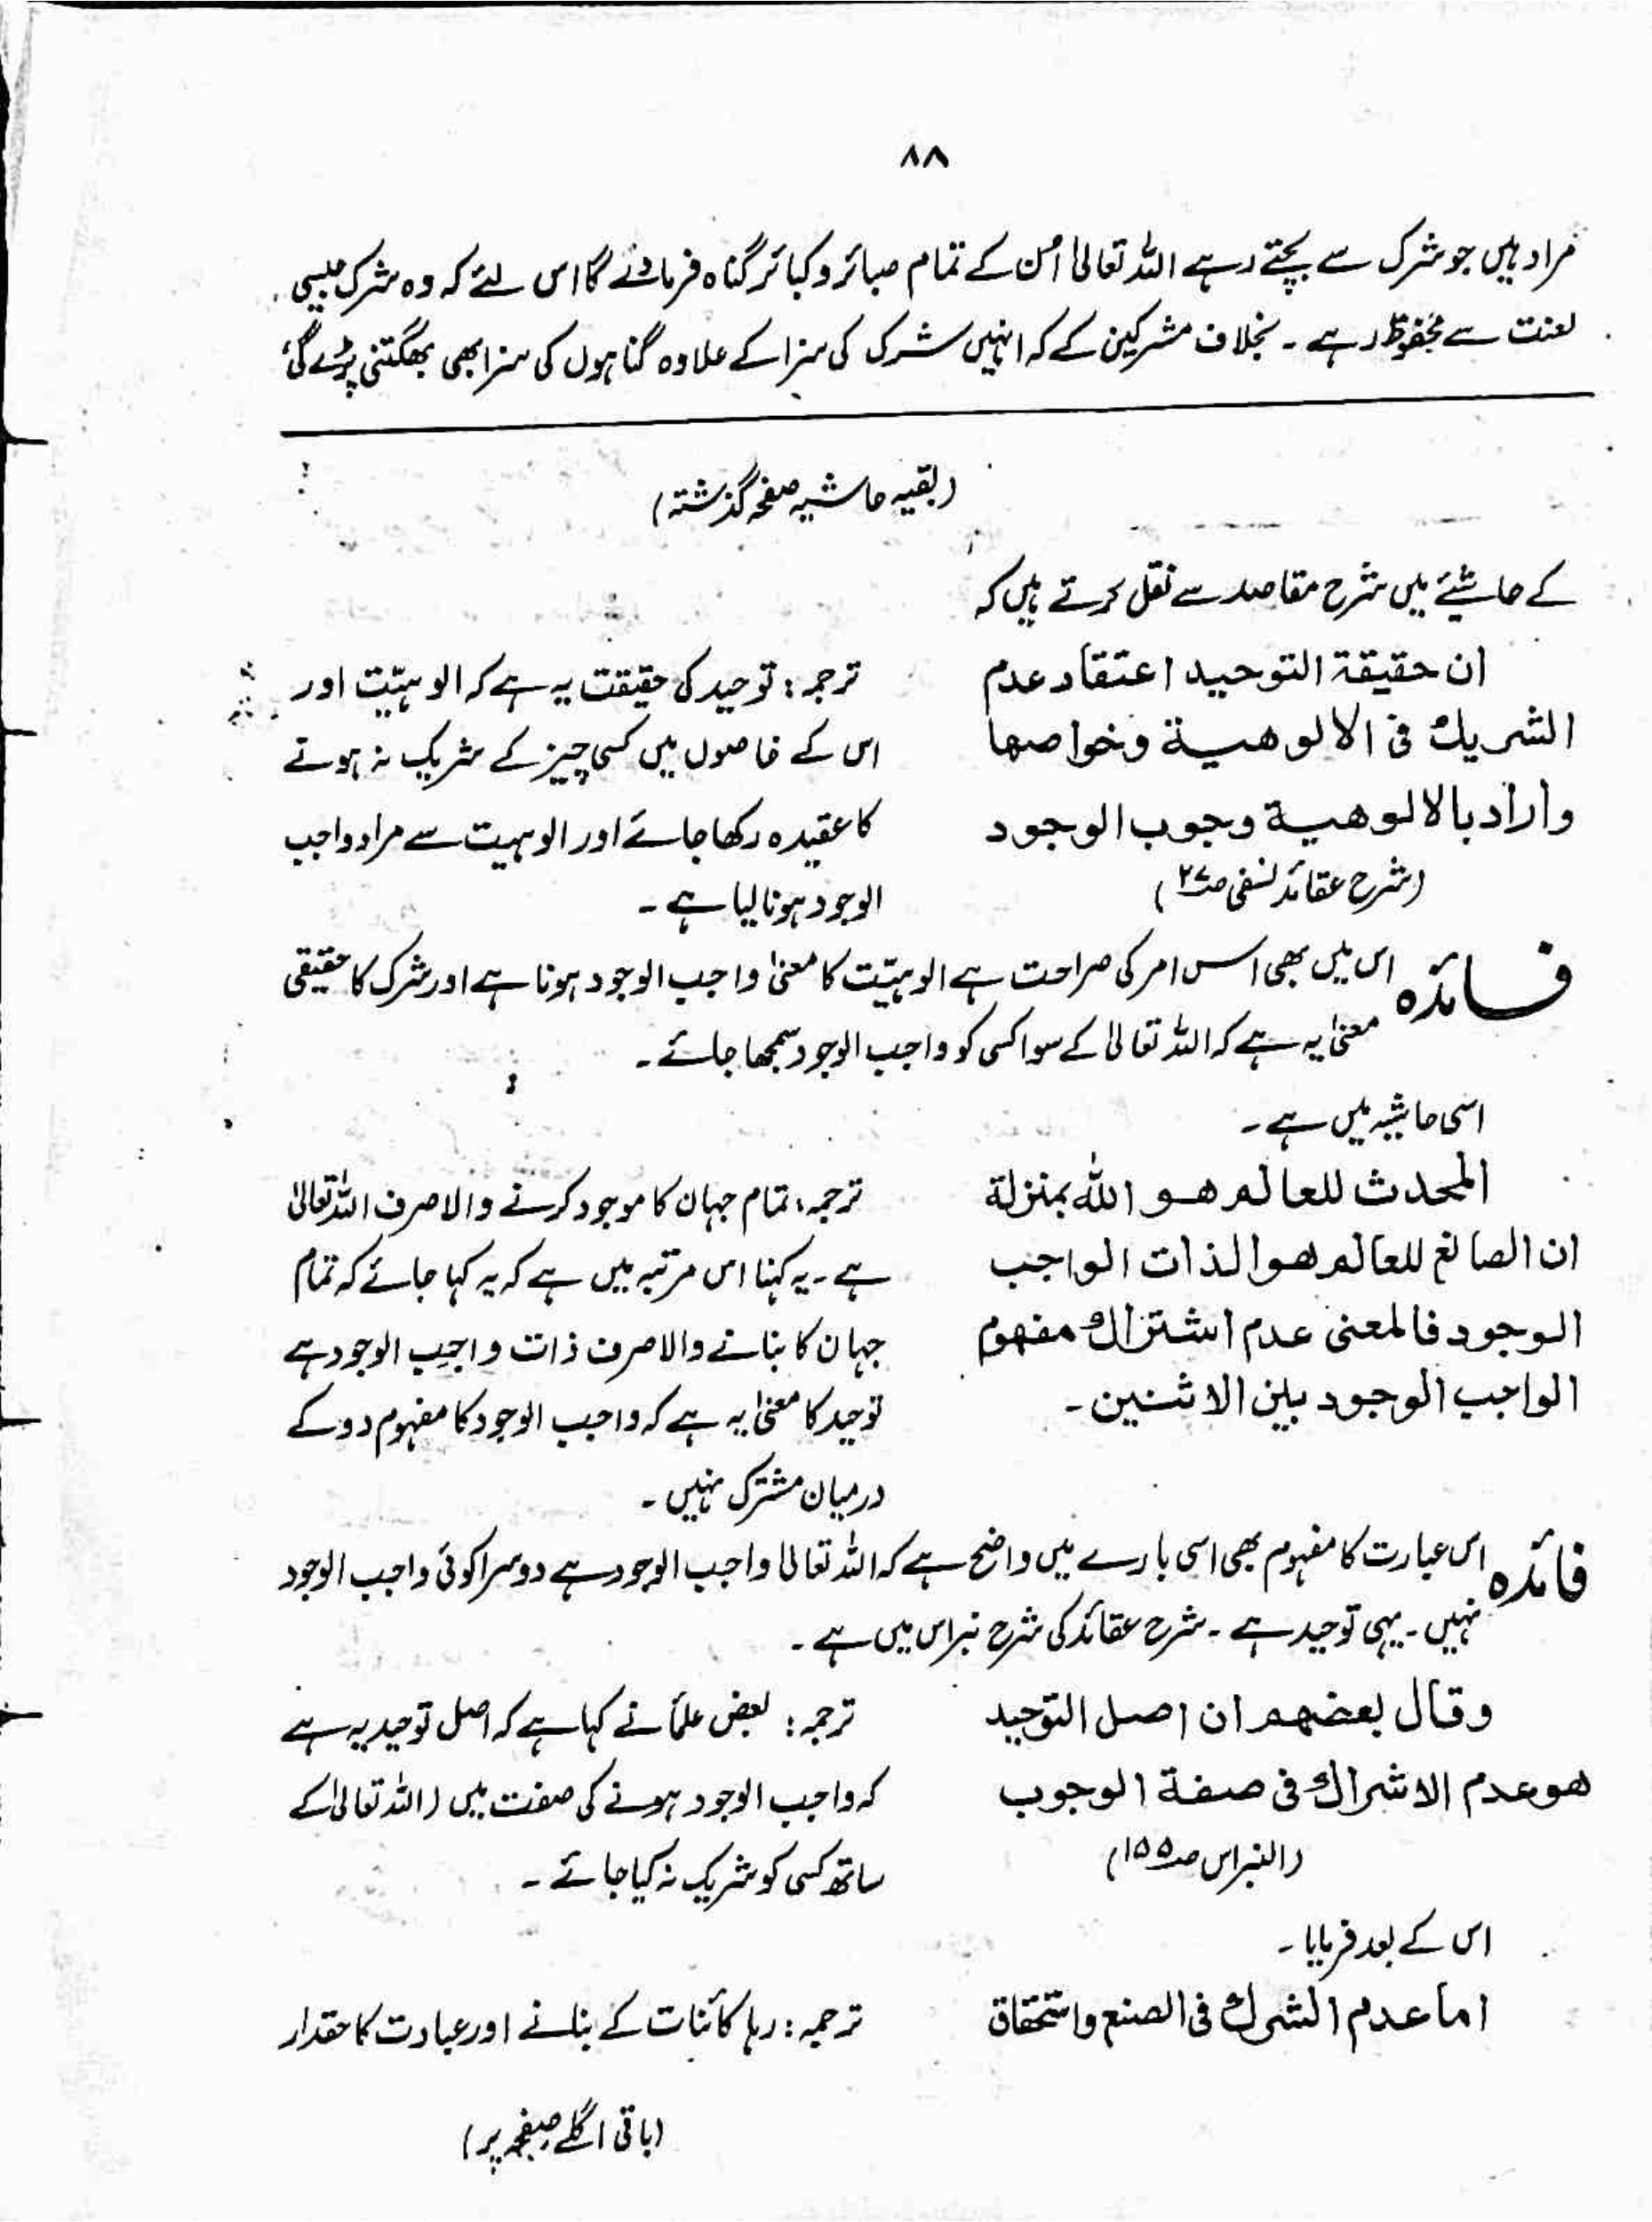 ۸۸
مراد ہیں جو شرک سے بچتے رہے اللہ تعالیٰ اُن کے تمام صبائر و کبائر گناہ فرمادے گا اس لئے کہ وہ شرک جیسی
لعنت سے محفوظ رہے ۔ بخلاف مشرکین کے کہ انہیں شرک کی سزا کے علاوہ گناہوں کی سزا بھی بھگتنی پڑے گی
(بقیہ حاشیہ صفحہ گذشتہ)
کے حاشیئے میں شرح مقاصد سے نقل کرتے ہیں کہ
ان حقیقۃ التوحید اعتقاد عدم
الشریك فی الالوھیۃ وخواصھا
وأراد بالالوھیۃ وجوب الوجود
(شرح عقائد نسفی صـ۲۷)
ترجمہ: توحید کی حقیقت یہ ہے کہ الوہیّت اور
اس کے خاصوں میں کسی چیز کے شریک نہ ہونے
کا عقیدہ رکھا جائے اور الوہیت سے مراد واجب
الوجود ہونا لیا ہے ۔
فائدہ اس میں بھی اس امر کی صراحت ہے الوہیّت کا معنیٰ واجب الوجود ہونا ہے اور شرک کا حقیقی
معنیٰ یہ ہے کہ اللہ تعالیٰ کے سوا کسی کو واجب الوجود سمجھا جائے ۔
اسی حاشیہ میں ہے ۔
المحدث للعالم ھو اللہ بمنزلۃ
ان الصانع للعالم ھو الذات الواجب
الوجود فالمعنی عدم اشتراك مفھوم
الواجب الوجود بین الاثنین ۔
ترجمہ: تمام جہان کا موجود کرنے والا صرف اللہ تعالیٰ
ہے ۔ یہ کہنا اس مرتبہ میں ہے کہ یہ کہا جائے کہ تمام
جہان کا بنانے والا صرف ذات واجب الوجود ہے
توحید کا معنیٰ یہ ہے کہ واجب الوجود کا مفہوم دو کے
درمیان مشترک نہیں ۔
فائدہ اس عبارت کا مفہوم بھی اسی بارے میں واضح ہے کہ اللہ تعالیٰ واجب الوجود ہے دوسرا کوئی واجب الوجود
نہیں ۔ یہی توحید ہے ۔ شرح عقائد کی شرح نبراس میں ہے ۔
وقال بعضھم ان اصل التوحید
ھو عدم الاشراك فی صفۃ الوجوب
(النبراس صـ۱۵۵)
ترجمہ: بعض علماء نے کہا ہے کہ اصل توحید یہ ہے
کہ واجب الوجود ہونے کی صفت میں (اللہ تعالیٰ کے
ساتھ کسی کو شریک نہ کیا جائے ۔
اس کے بعد فرمایا ۔
اما عدم الشرك فی الصنع واستحقاق
ترجمہ: رہا کائنات کے بنانے اور عبادت کا حقدار
(باقی اگلے صفحہ پر)